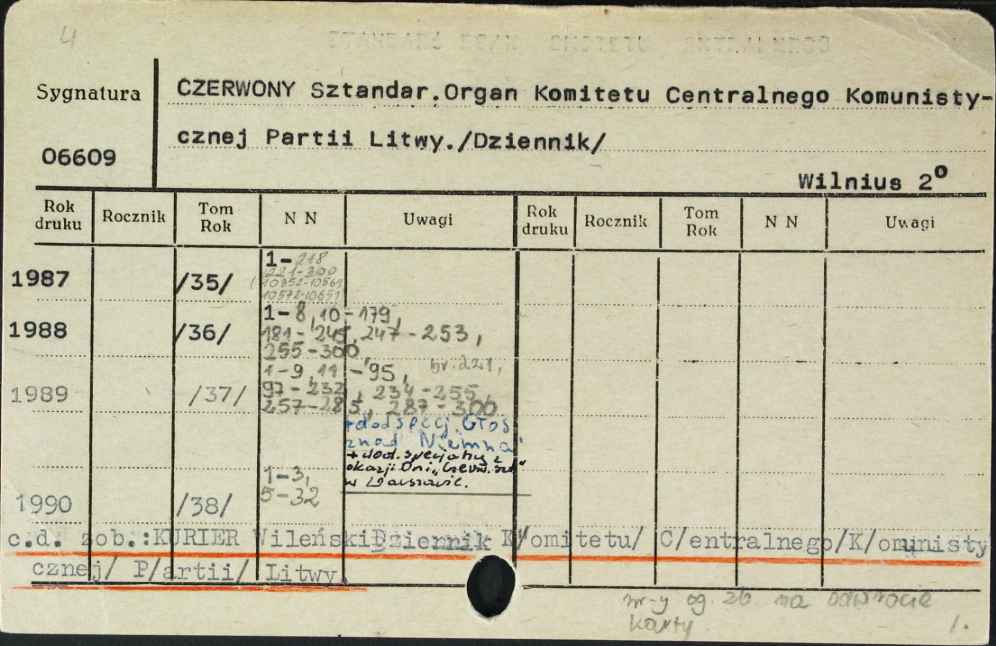 4
Sygnatura
06609
CZERWONY Sztandar.Organ Komitetu Centralnego Komunisty-
cznej Partii Litwy./Dziennik/
Wilnius 2º
Rok druku Rocznik Tom Rok N N Uwagi Rok druku Rocznik Tom Rok N N Uwagi
1987 /35/ 1-218
221-300
10572-10651
1988 /36/ 1-8, 10-179,
181-245, 247-253,
255-300
1989 /37/ 1-9, 11-95, nr. 221,
97-232, 234-255,
257-285, 287-300
+ dod specj. Głos
znad Niemna
+ dod. specjalny z
okazji Dni "Czerw. Szt"
w Warszawie.
1990 /38/ 1-3,
5-32
c.d. zob.:KURIER Wileński Dziennik K/omitetu/ C/entralnego/K/omunisty
cznej/ P/artii/ Litwy.
nr-y og. zb. na odwrocie
karty
1.